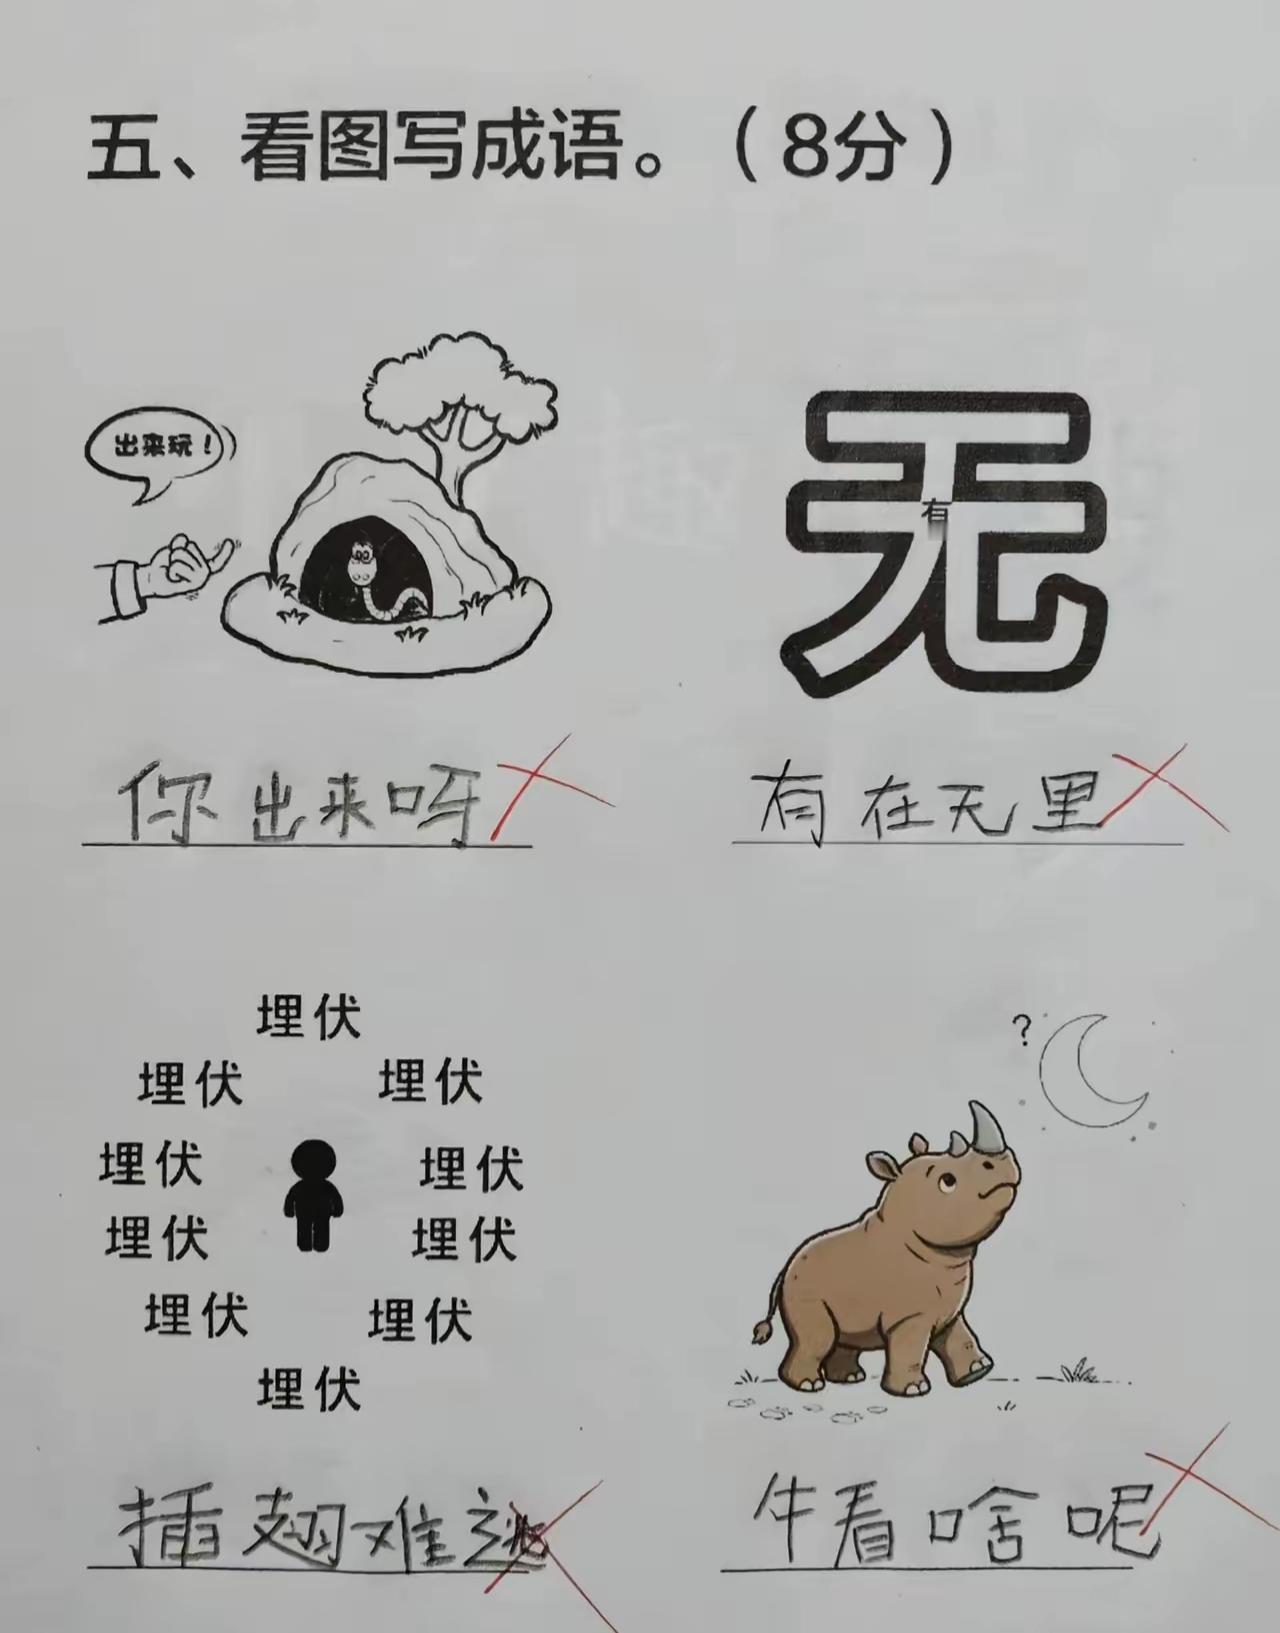 五、看图写成语。（8分）
出来玩！
无
有
你出来呀
有在无里
埋伏
埋伏 埋伏
埋伏 埋伏
埋伏 埋伏
埋伏 埋伏
埋伏
?
插翅难逃
牛看啥呢